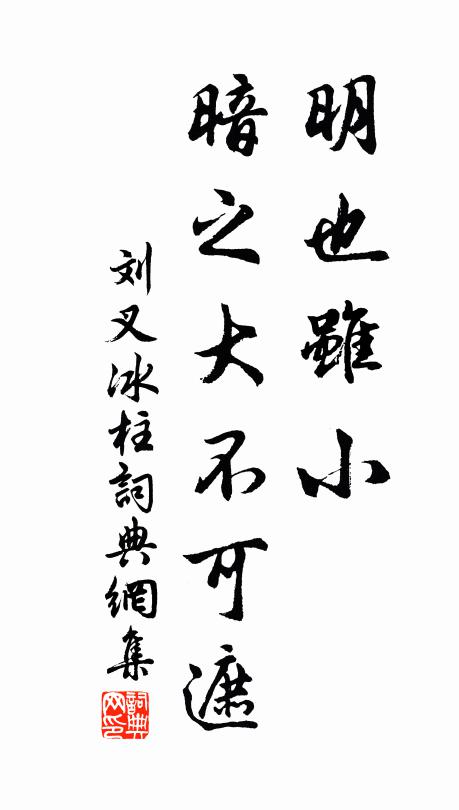 明也雖小
暗之大不可遮
刘叉冰柱詞典網集
詞典网印